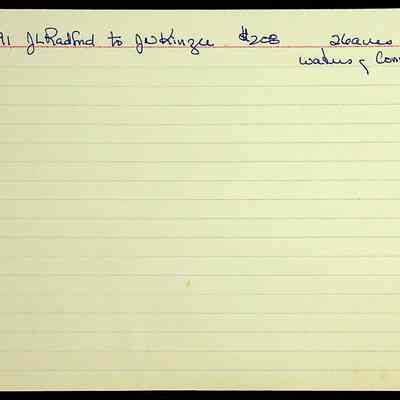 91 JL Radford to JW Kinzie $208 26 acres
waters of Conn